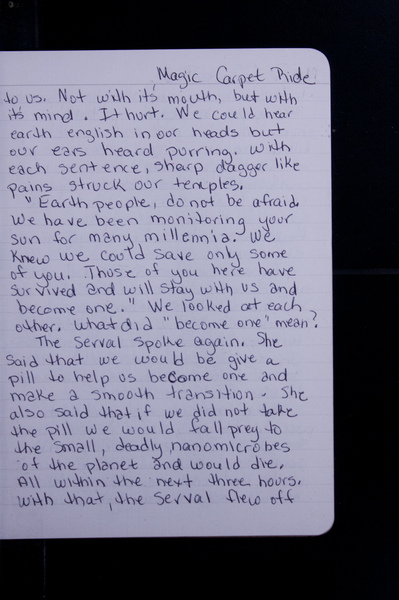 Magic Carpet Ride
to us. Not with it's mouth, but with
it's mind. It hurt. We could hear
earth english in our heads but
our ears heard purring. With
each sentence, sharp dagger like
pains struck our temples.
"Earth people, do not be afraid.
We have been monitoring your
sun for many millennia. We
knew we could save only some
of you. Those of you here have
survived and will stay with us and
become one." We looked at each
other. What did "become one" mean?
The Serval spoke again. She
said that we would be give a
pill to help us become one and
make a smooth transition. She
also said that if we did not take
the pill we would fall prey to
the small, deadly nanomicrobes
of the planet and would die.
All within the next three hours.
With that, the Serval flew off